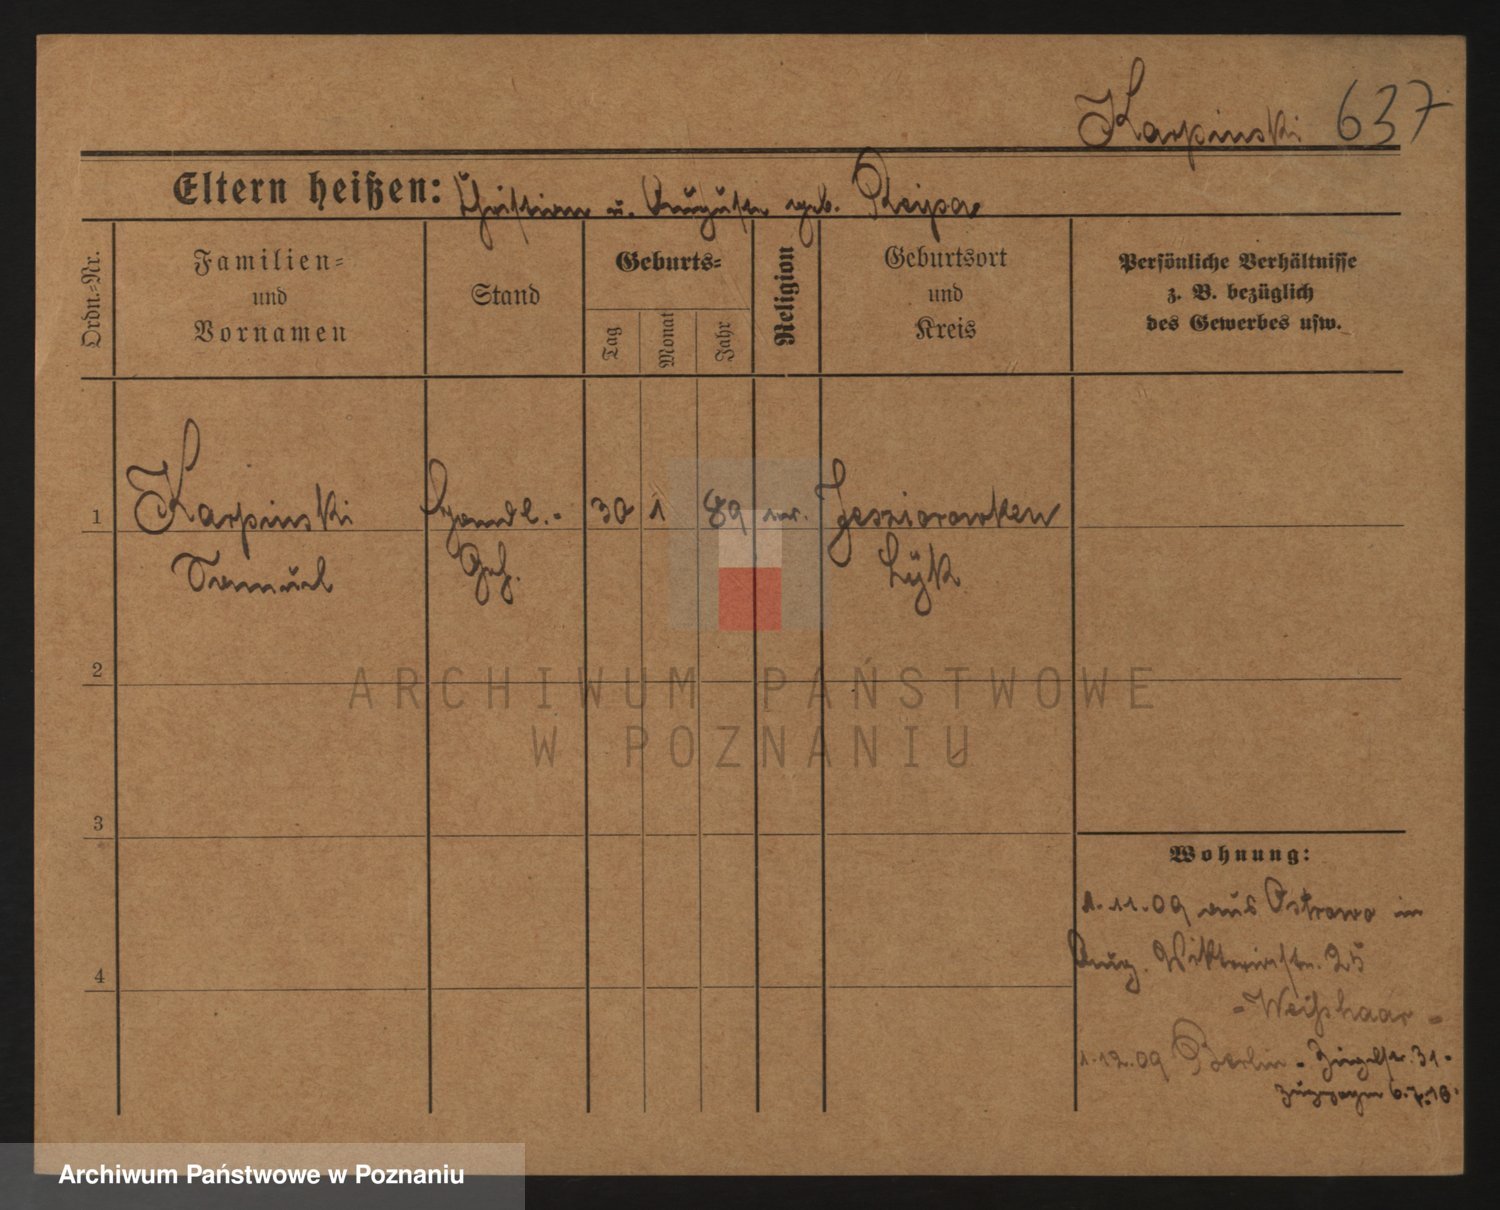 Karpinski 637
Eltern heißen: Christian u. Auguste geb. Kleipa
Ordn.-Nr.
Familien-
und
Vornamen
Stand
Geburts-
Tag
Monat
Jahr
Religion
Geburtsort
und
Kreis
Persönliche Verhältnisse
z. B. bezüglich
des Gewerbes usw.
1 Karpinski Handl.- 30 1 89 ev. Jesziorowken
Samuel Geh. Lÿk
2
ARCHIWUM PAŃSTWOWE
W POZNANIU
3
Wohnung:
1.11.09 aus Ostrowo in
Aug. Viktoriastr. 25
- Weißhaar -
4
1.12.09 Berlin - Ziegelstr. 31-
6.7.18.
Archiwum Państwowe w Poznaniu